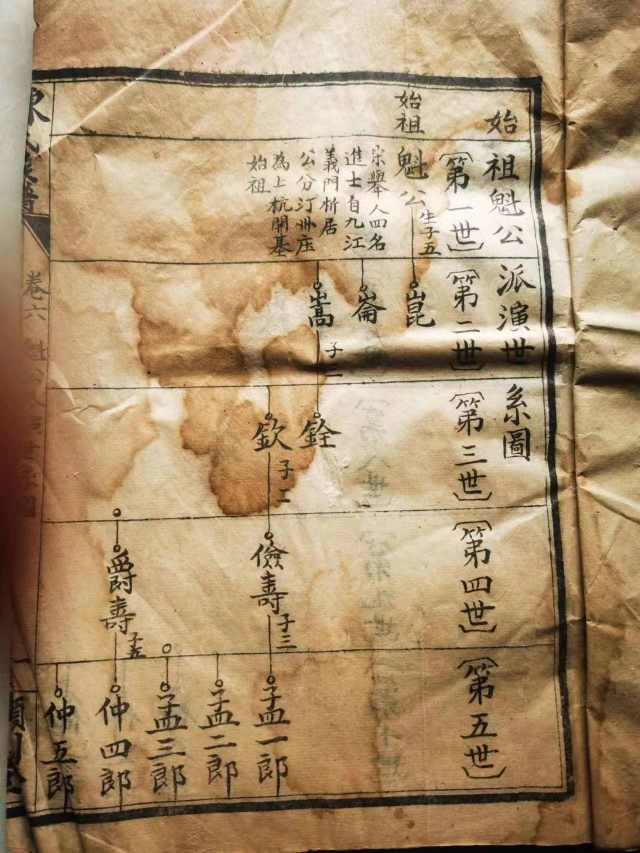 始祖魁公派演世系圖
〔第一世〕
〔第二世〕
〔第三世〕
〔第四世〕
〔第五世〕
始祖
魁公
生子五
宗舉人四名
進士自九江
義門析居
公分汀州庄
為上杭開基
始祖
崑
崙
嵩
子二
銓
欽
子二
儉壽
子三
爵壽
子五
孟一郎
孟二郎
孟三郎
仲四郎
仲五郎
卷六